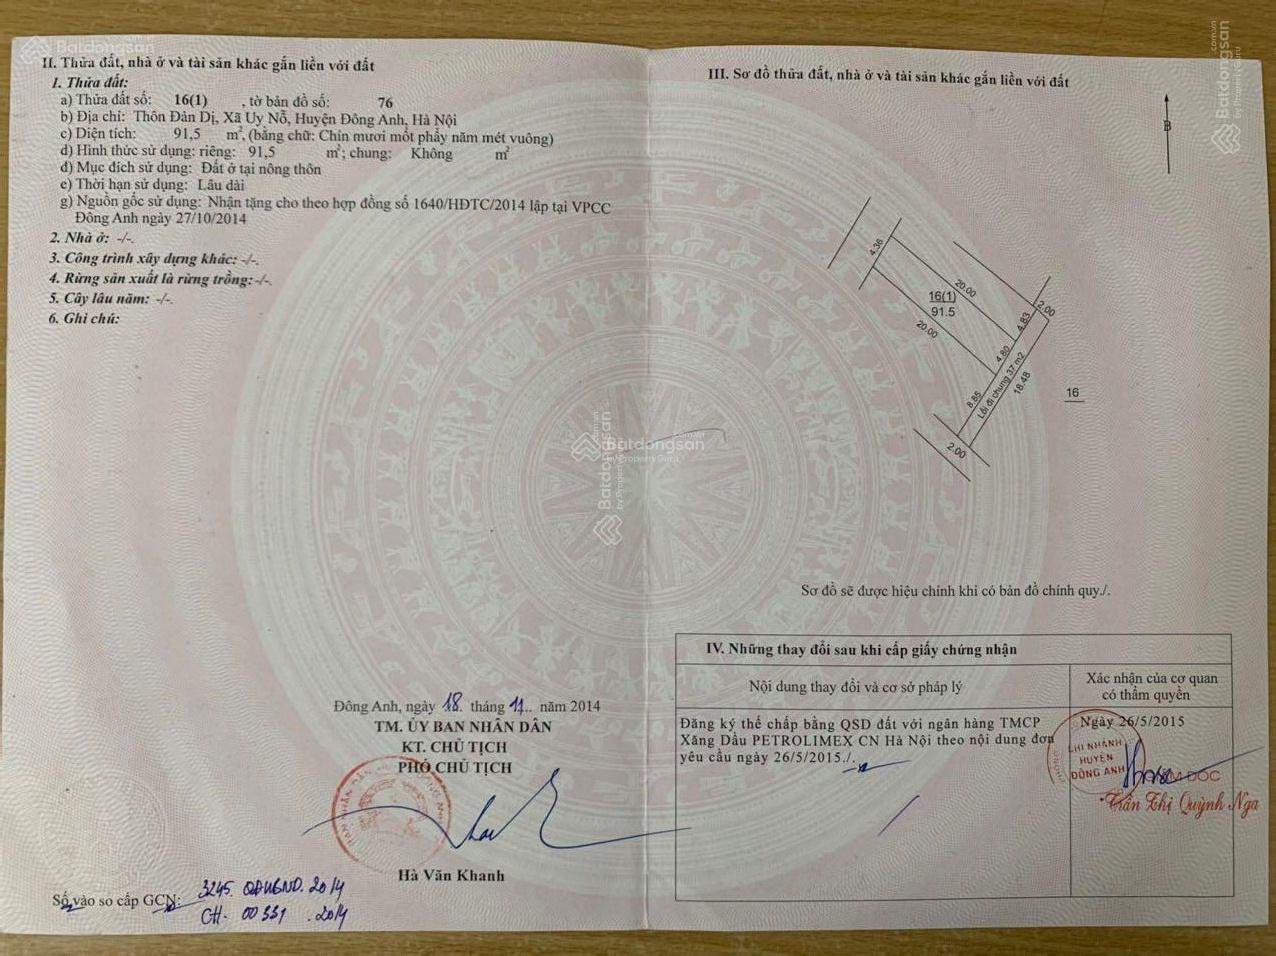 II. Thửa đất, nhà ở và tài sản khác gắn liền với đất
1. Thửa đất:
a) Thửa đất số: 16(1) , tờ bản đồ số: 76
b) Địa chỉ: Thôn Đản Dị, Xã Uy Nỗ, Huyện Đông Anh, Hà Nội
c) Diện tích: 91,5 m², (bằng chữ: Chín mươi mốt phẩy năm mét vuông)
d) Hình thức sử dụng: riêng: 91,5 m²; chung: Không m²
đ) Mục đích sử dụng: Đất ở tại nông thôn
e) Thời hạn sử dụng: Lâu dài
g) Nguồn gốc sử dụng: Nhận tặng cho theo hợp đồng số 1640/HĐTC/2014 lập tại VPCC
Đông Anh ngày 27/10/2014
2. Nhà ở: -/-.
3. Công trình xây dựng khác: -/-.
4. Rừng sản xuất là rừng trồng: -/-.
5. Cây lâu năm: -/-.
6. Ghi chú:
Đông Anh, ngày 18. tháng 11.. năm 2014
TM. ỦY BAN NHÂN DÂN
KT. CHỦ TỊCH
PHÓ CHỦ TỊCH
Hà Văn Khanh
Số vào sổ cấp GCN: 3245. QĐUBND. 2014
CH- 00331 . 2014
III. Sơ đồ thửa đất, nhà ở và tài sản khác gắn liền với đất
B
4.36
20.00
16(1)
91.5
20.00
2.00
4.83
4.80
Lối đi chung 37 m2
18.48
8.85
2.00
16
Sơ đồ sẽ được hiệu chỉnh khi có bản đồ chính quy./.
IV. Những thay đổi sau khi cấp giấy chứng nhận
Nội dung thay đổi và cơ sở pháp lý
Xác nhận của cơ quan
có thẩm quyền
Đăng ký thế chấp bằng QSD đất với ngân hàng TMCP
Xăng Dầu PETROLIMEX CN Hà Nội theo nội dung đơn
yêu cầu ngày 26/5/2015./.
Ngày 26/5/2015
CHI NHÁNH
HUYỆN
ĐÔNG ANH
GIÁM ĐỐC
Trần Thị Quỳnh Nga
Batdongsan
.com.vn
by Property Guru
Batdongsan
.com.vn
by Property Guru
Batdongsan
Batdongsan
.com.vn